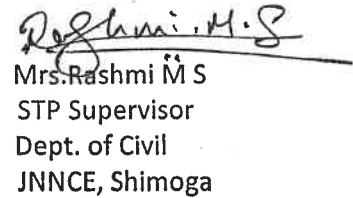 Rashmi.M.S
Mrs.Rashmi M S
STP Supervisor
Dept. of Civil
JNNCE, Shimoga